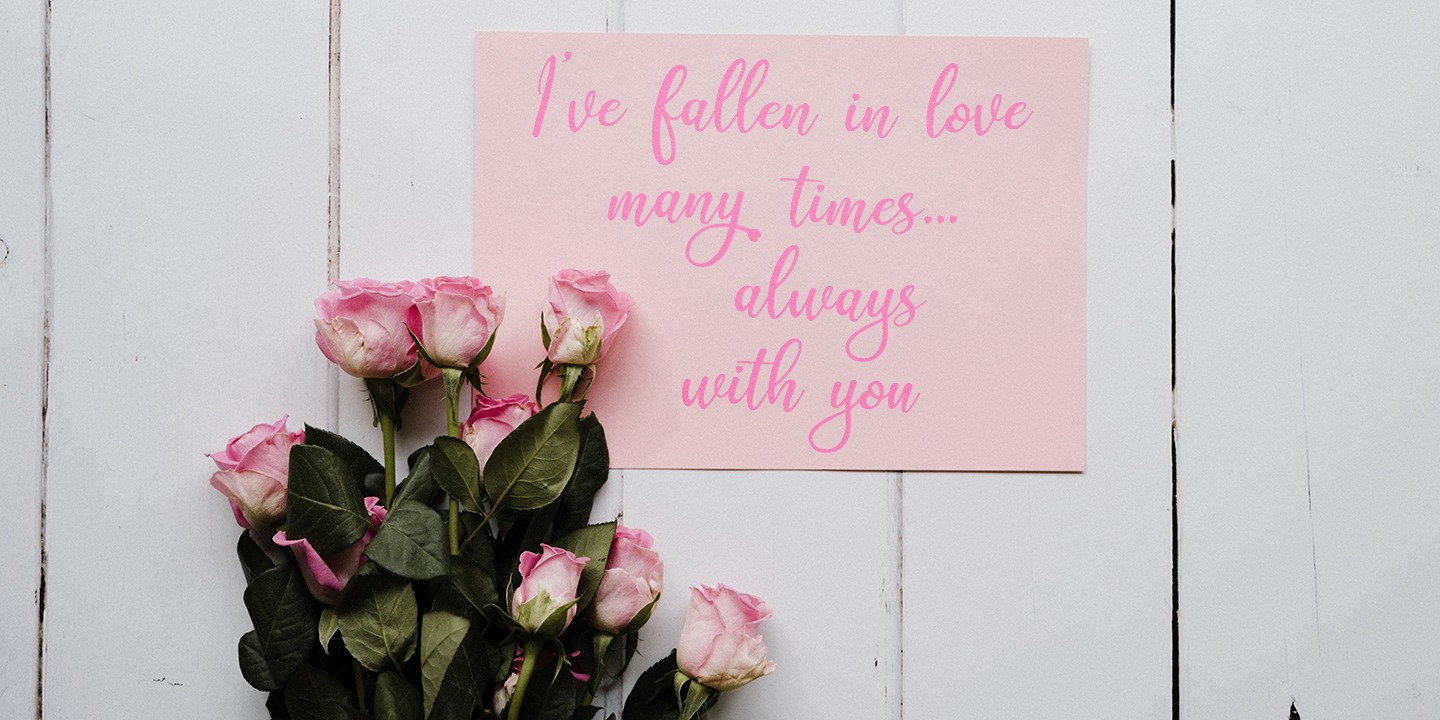 I've fallen in love
many times...
always
with you